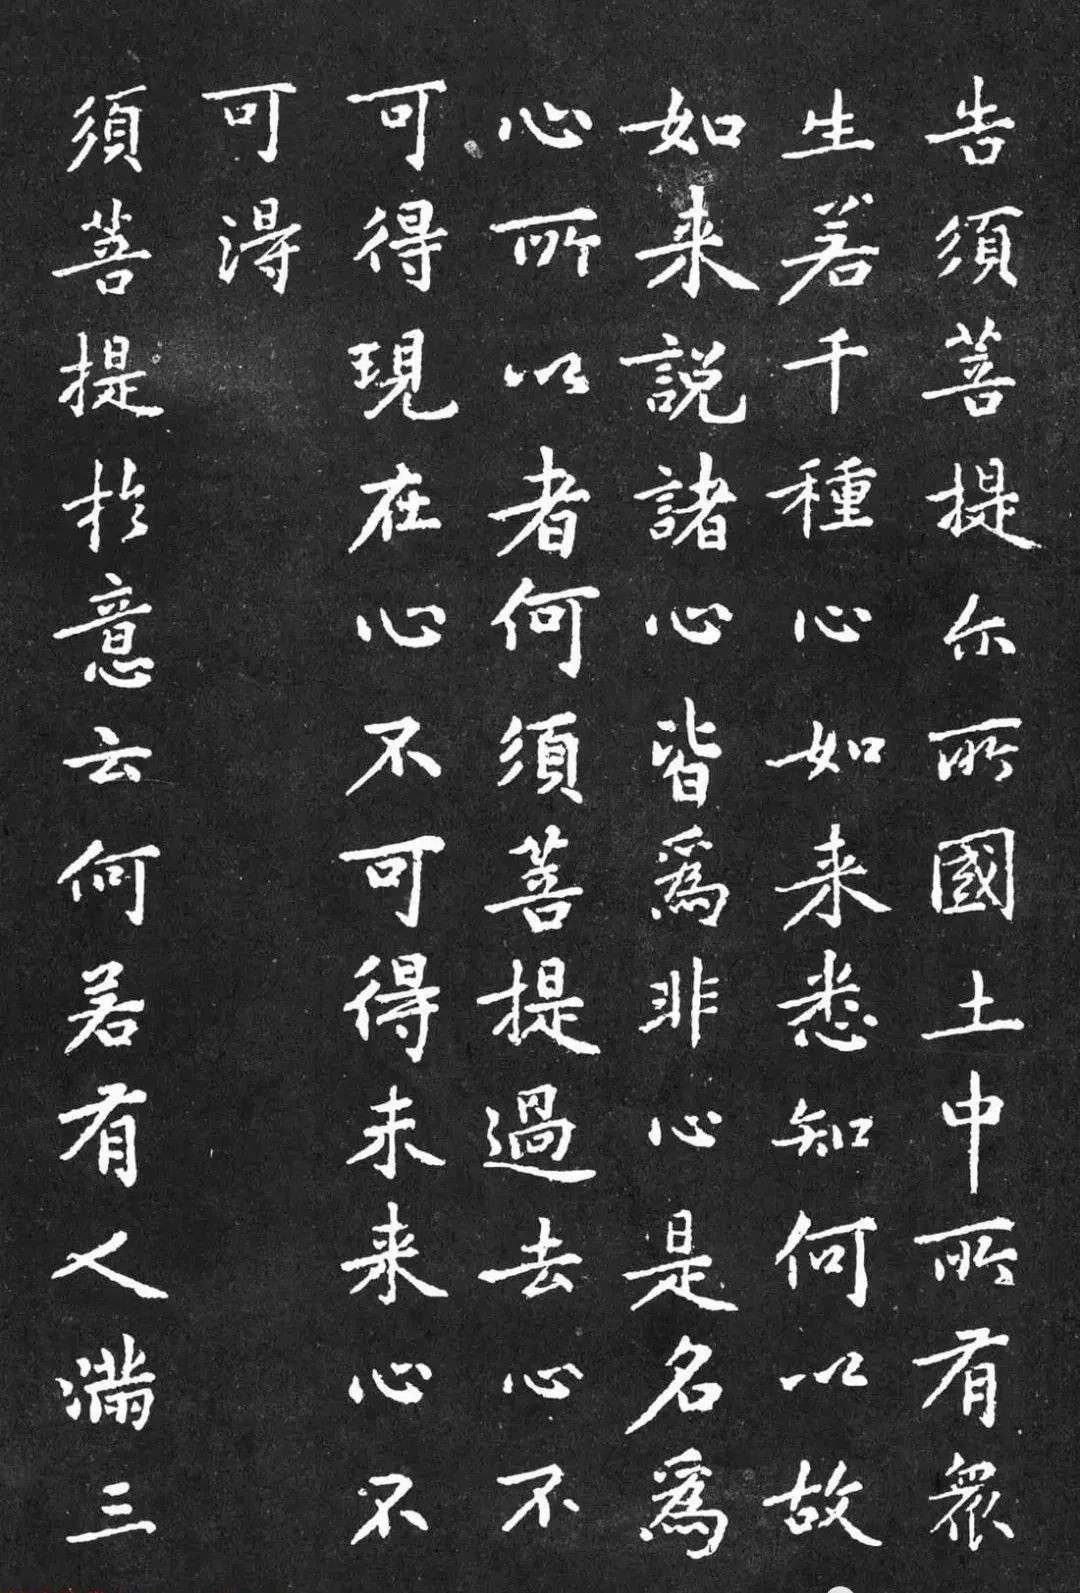 告須菩提尔所國土中所有衆
生若干種心如来悉知何以故
如来説諸心皆爲非心是名爲
心所以者何須菩提過去心不
可得現在心不可得未来心不
可得
須菩提於意云何若有人滿三